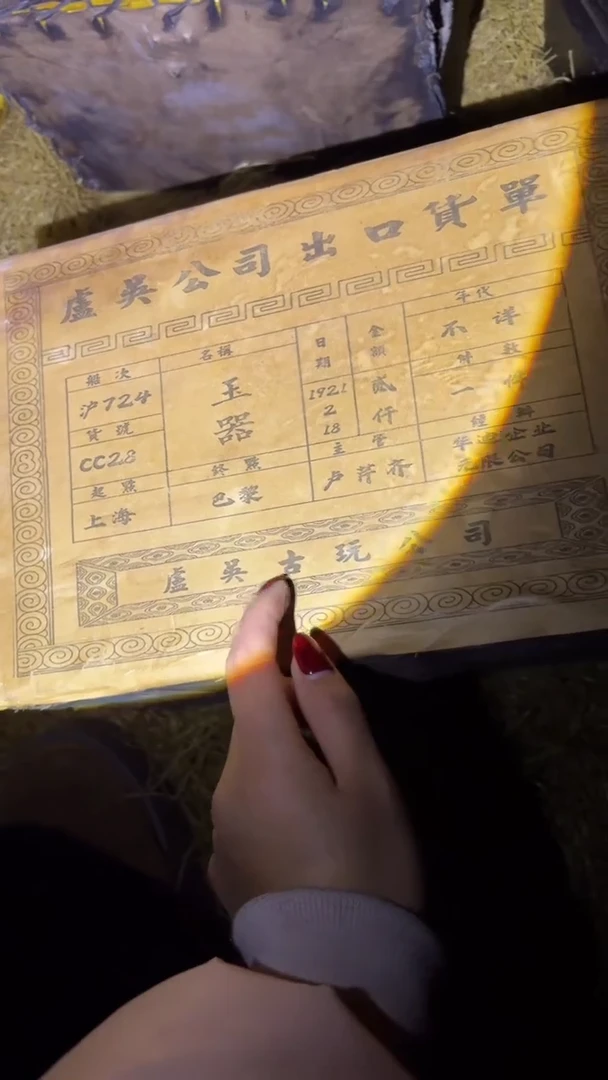 盧吳公司出口貨單
船次
沪724
貨號
CC28
起點
上海
名稱
玉器
終點
巴黎
日期
1921
2
18
金額
貳仟
主管
卢芹齐
年代
不詳
件数
一件
企业
限公司
盧吳古玩公司